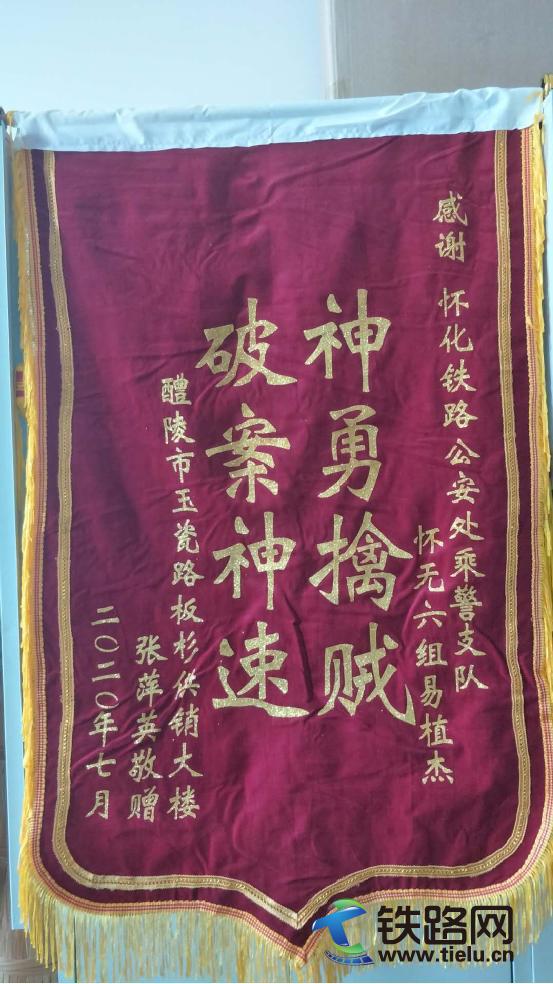 感谢 怀化铁路公安处乘警支队
怀无六组易植杰
神勇擒贼
破案神速
醴陵市玉瓷路板杉供销大楼
张萍英敬赠
二〇二〇年七月
铁路网
www.tielu.cn